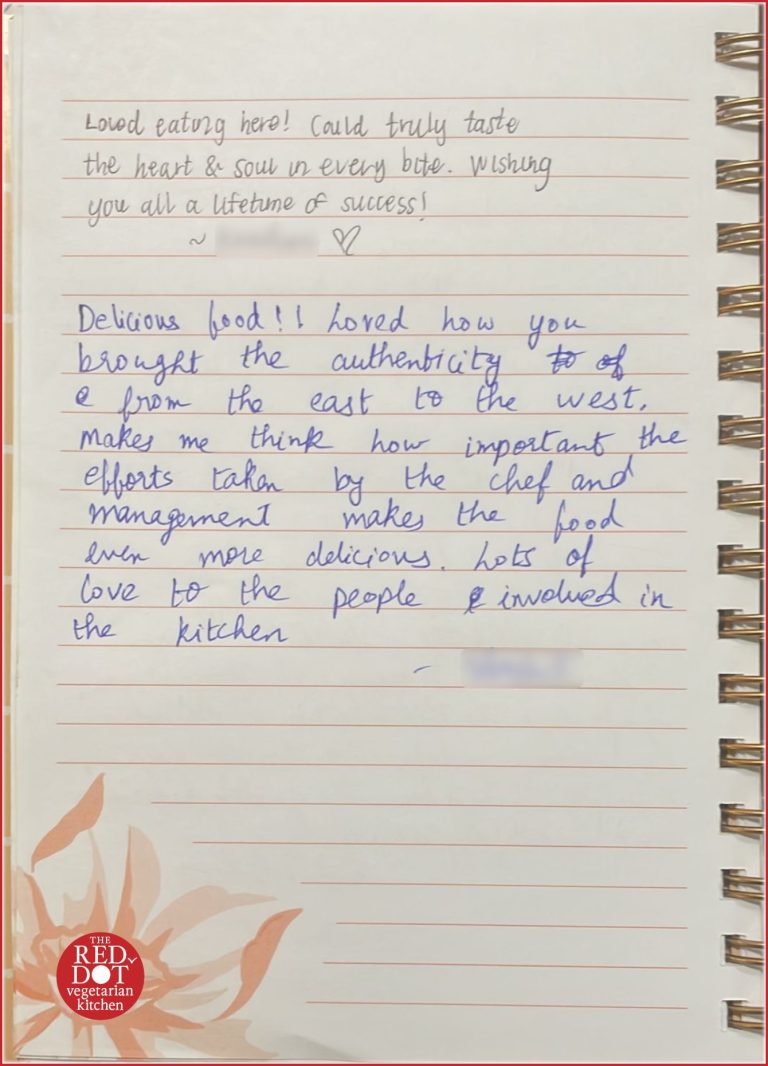 Loved eating here! Could truly taste
the heart & soul in every bite. Wishing
you all a lifetime of success!
~ ♡
Delicious food!! Loved how you
brought the authenticity to of
e from the east to the west.
makes me think how important the
efforts taken by the chef and
management makes the food
even more delicious. Lots of
love to the people involved in
the kitchen
-
THE
RED
DOT
vegetarian
kitchen